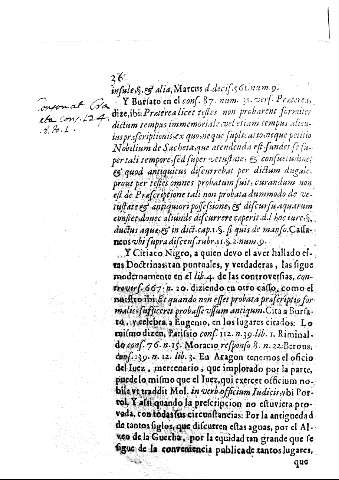 36
insule. §. & alia, Marcus d. decis. 561. num. 9.
Y Bursato en el cons. 87. num. 31. vers. Præterea,
dize, ibi: Præterea licet testes non probarent formiter
dictum tempus immemoriale, vel etiam tempus alicu-
ius præscriptionis, ex quo neque suplicatio neque petitio
Nobilium de Sacheta, que atendenda est fundet se su-
per tali tempore, sed super vetustate, & consuetudine,
& quod antiquitus discurrebat per dictum
prout per testes omnes probatum fuit, curandum non
est de Præscriptione tali non probata dummodo de ve-
tustate & antiquiori possessione, & discursu aquarum
constet, donec aliunde discurrere ceperit. d. l. hoc iure. §.
ductus aquæ, & in dict. cap. 1. §. si quis de manso. Cassa-
neus ubi supra discens. rubr. 11. §. 2. num. 9.
Y Ciriaco Nigro, a quien devo el aver hallado es-
tas Doctrinas tan pontuales, y verdaderas, las sigue
modernamente en el lib. 4. de las controversias, con-
trovers. 667. n. 20. diziendo en otro casso, como el
nuestro ibi: Et quando non esset probata præscriptio for-
malis sufficeret probasse usum antiquum. Cita a Bursa-
to, y celebra a Eugenio, en los lugares citados: Lo
mismo dizen, Parisio cons. 112. n. 39. lib. 1. Riminal-
do cons. 76. n. 15. Moracio responso 8. n. 22. Berous,
cons. 139. n. 12. lib. 3. En Aragon tenemos el oficio
del Iuez, mercenario, que implorado por la parte,
puede lo mismo que el Iuez, qui exercet officium no-
bile ut traddit Mol. in verb. officium Iudicis, ubi Por-
tol. Y assi quando la prescripcion no estuviera pro-
vada, con todas sus circunstancias: Por la antigueda d
de tantos siglos, que discurren estas aguas, por el Al-
veo de la Guerba, por la equidad tan grande que se
sigue de la conveniencia publica de tantos lugares,
que